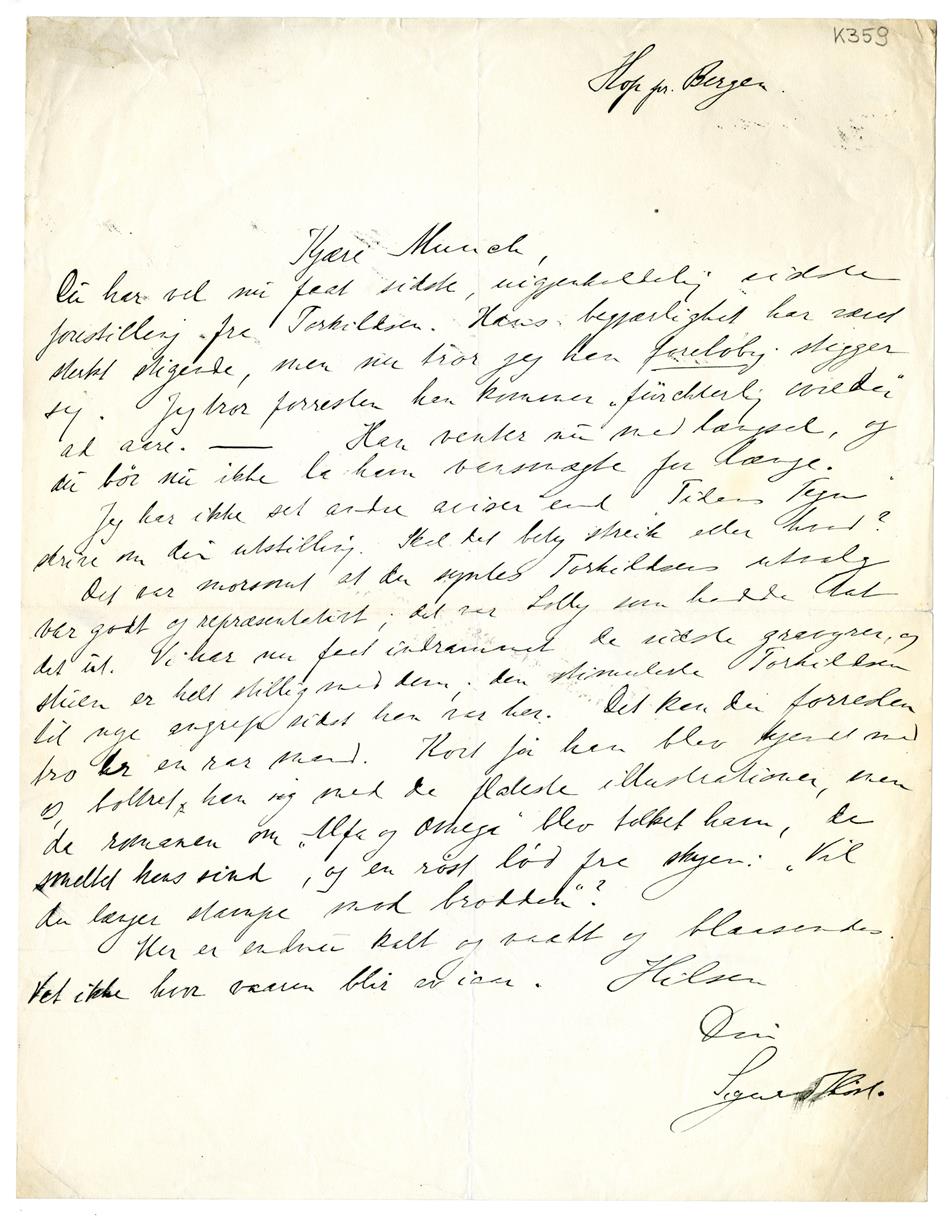 K359
Hop pr. Bergen.
Kjære Munch,
Du har vel nu faat sidste, uigjenkaldelig sidste
forestilling fra Torkildsen. Hans begjærlighet har været
sterkt stigende, men nu tror jeg han foreløbig stigger
sej. Jeg tror forresten han kommer „fürchterlig wieder"
ad aare. — Han venter nu med længsel, og
du bör nu ikke la ham vansmægte for længe.
Jeg har ikke set andre aviser end "Tidens Tegn"
skrive om din utstilling. Skal det bety streik eller hvad?
Det var morsomt at du syntes Torkildsens utvalg
var godt og repræsentativt; det var Lolly som hadde tat
det ut. Vi har nu faat indrammet de sidste gravyrer, og
stuen er helt stillig med dem; den stimulerte Torkildsen
til nye angrep sidst han var her. Det kan du forresten
tro er en rar mand. Kort før han blev kjendt med
boltret han sig med de fladeste illustrationer, men
da romanen om „Alfa og Omega" blev tolket ham, da
smeltet hans sind, og en røst lød fra skyen: „Vil
du længer stampe mod brodden"?
Her er endnu kalt og vaatt og blaasende.
Vet ikke hvor vaaren blir av iaar. Hilsen
Din
Sigurd Høst.